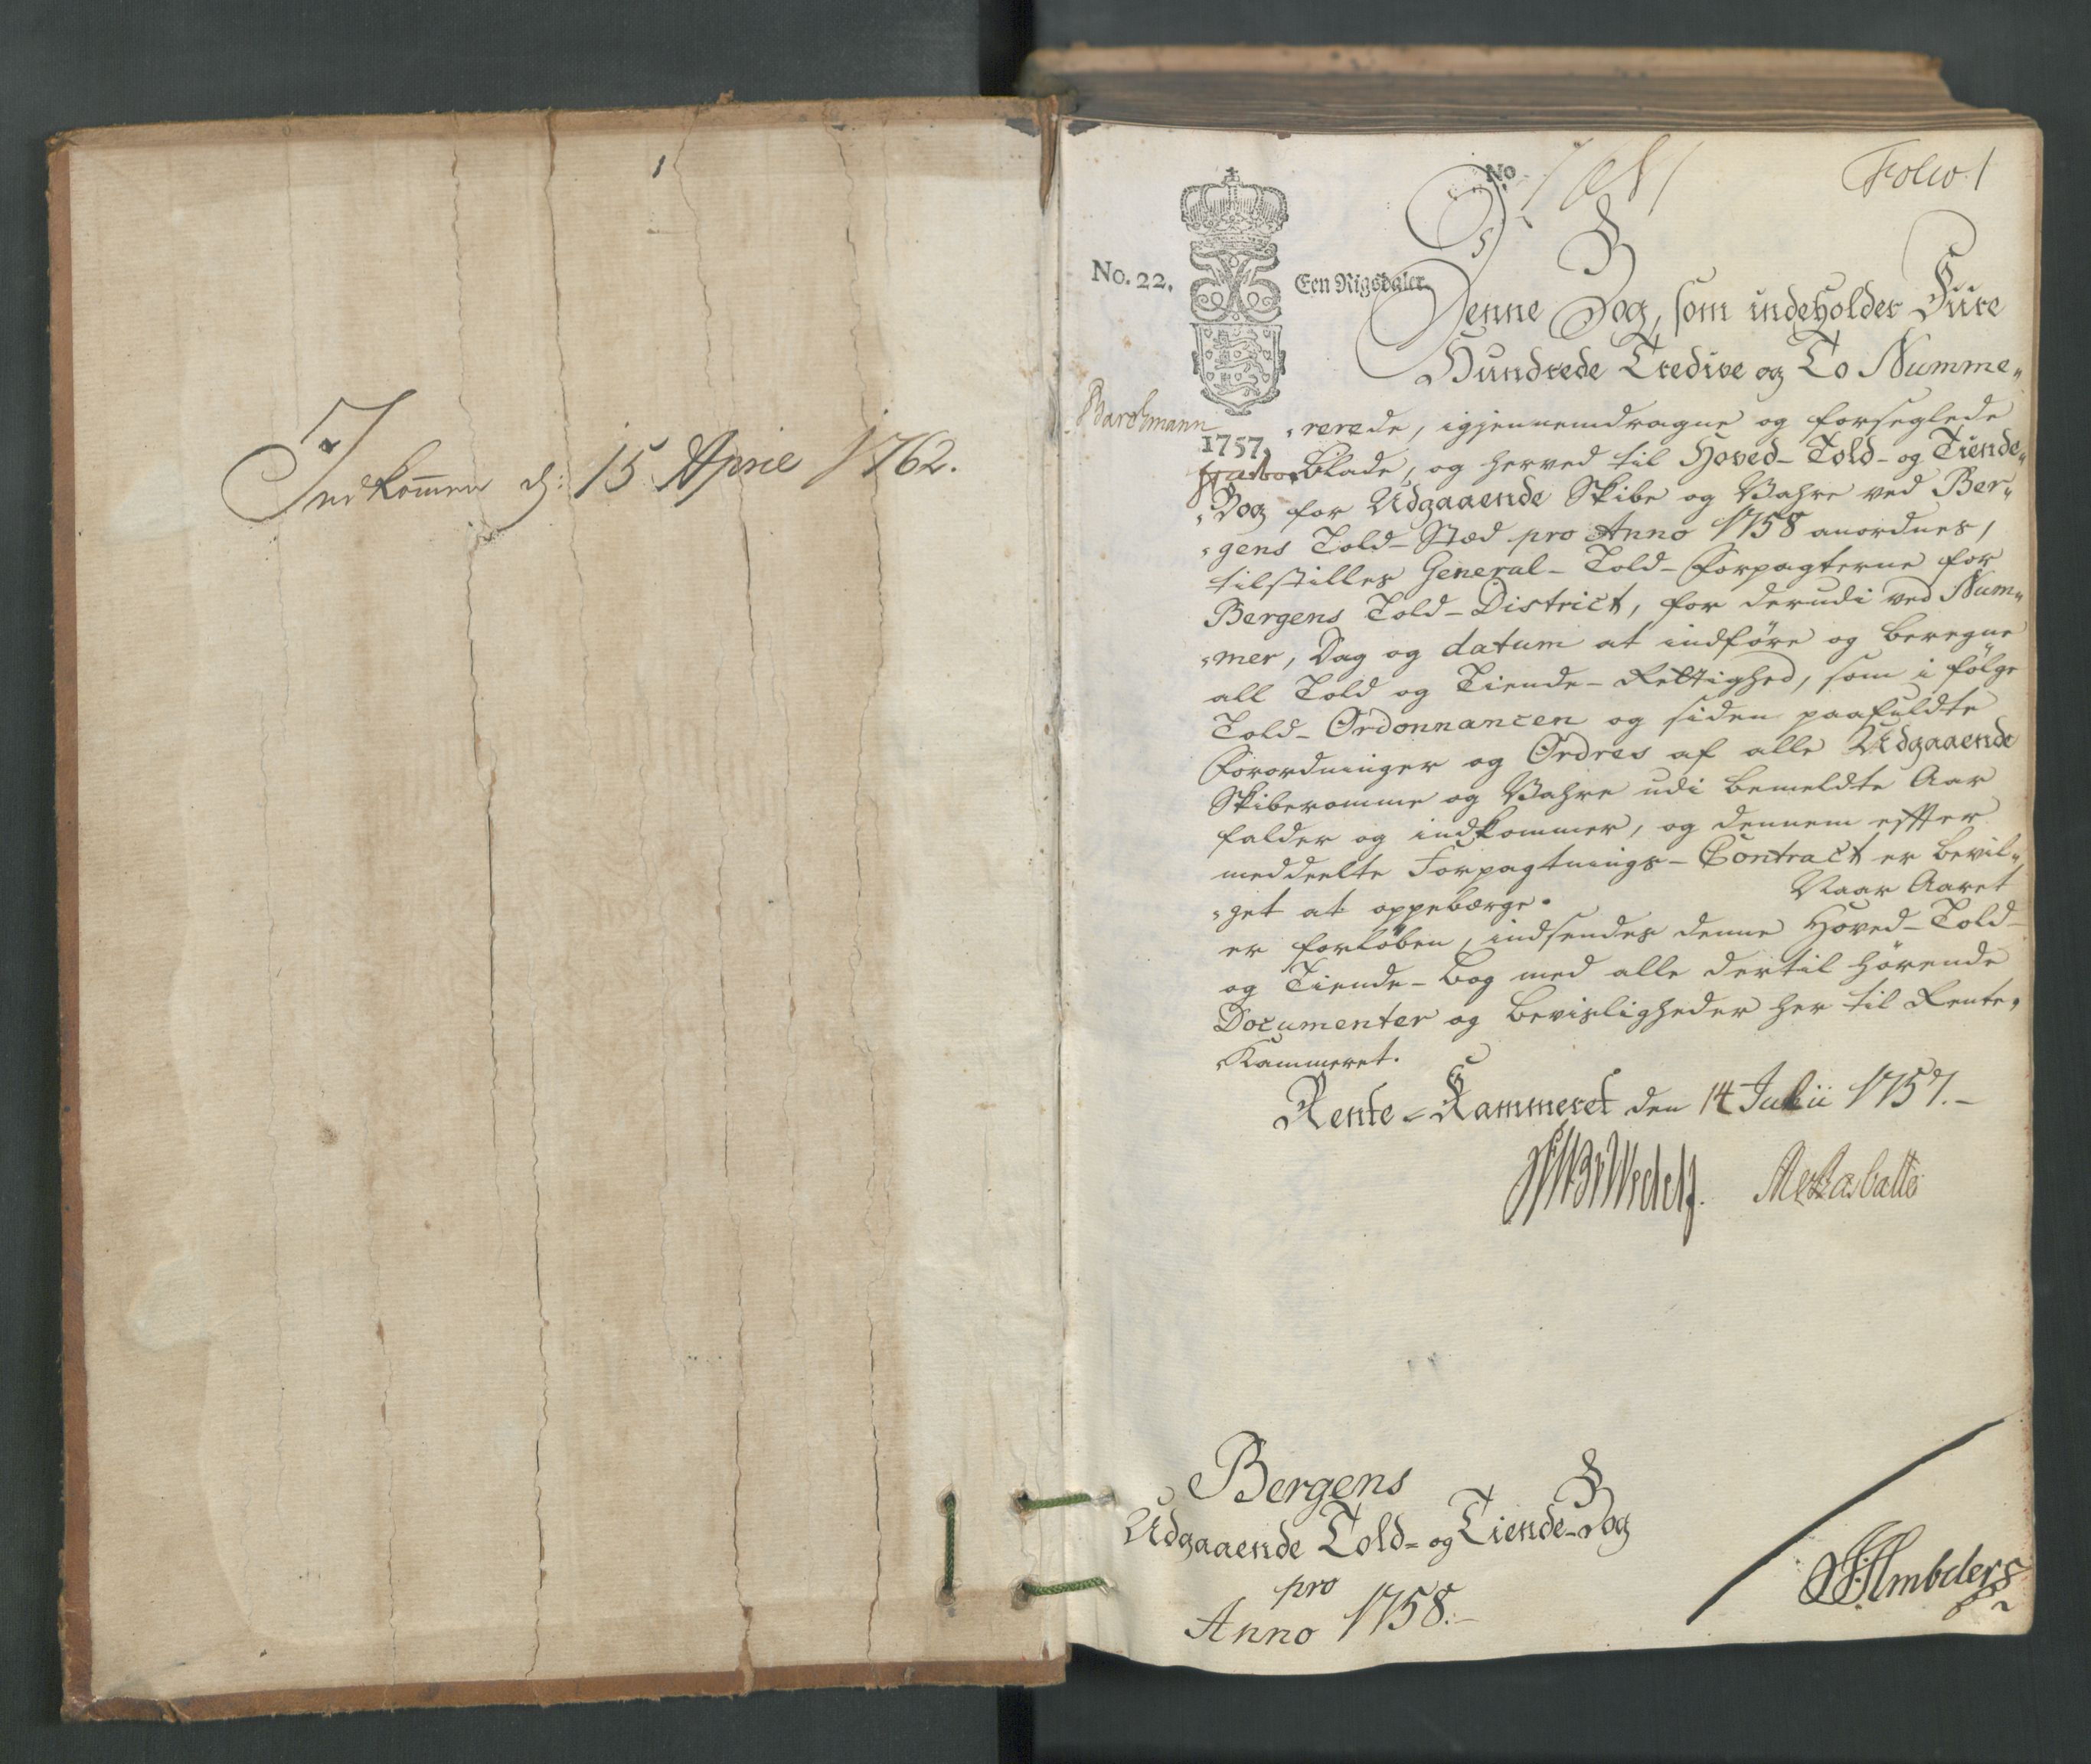 Indkom̄en d: 15 April 1762.
No
Folio 1
No. 22.
Een Rigsdaler.
Denne Bog, som indeholder Fiire
Hundrede Tredive og To Numme„
1757.
„rerede, igjennemdragne og forseglede
Blade, og herved til Hoved-Told- og Tiende„
„Bog for Udgaaende Skibe og Vahre ved Ber„
„gens Told-Stæd pro Anno 1758 anordnes,
tilstilles General-Told-Forpagterne for
Bergens Told-District, for derudi ved Num„
„mer, Dag og datum at indföre og beregne
all Told og Tiende-Rettighed, som i fölge
Told-Ordonnancen og siden paafuldte
Forordninger og Ordres af alle Udgaaende
Skiberomme og Vahre udi bemeldte Aar
falder og indkommer, og dennem effter
meddeelte Forpagtnings-Contract er bevil„
„get at oppebærge. Naar Aaret
er forlöben, indsendes denne Hoved-Told-
og Tiende-bog med alle dertil hörende
Documenter og beviisligheder her til Rente„
Kammeret.
Rente-Kammeret den 14 Julii 1757.-
Bergens
Udgaaende Told- og Tiende-Bog
pro
Anno 1758.-